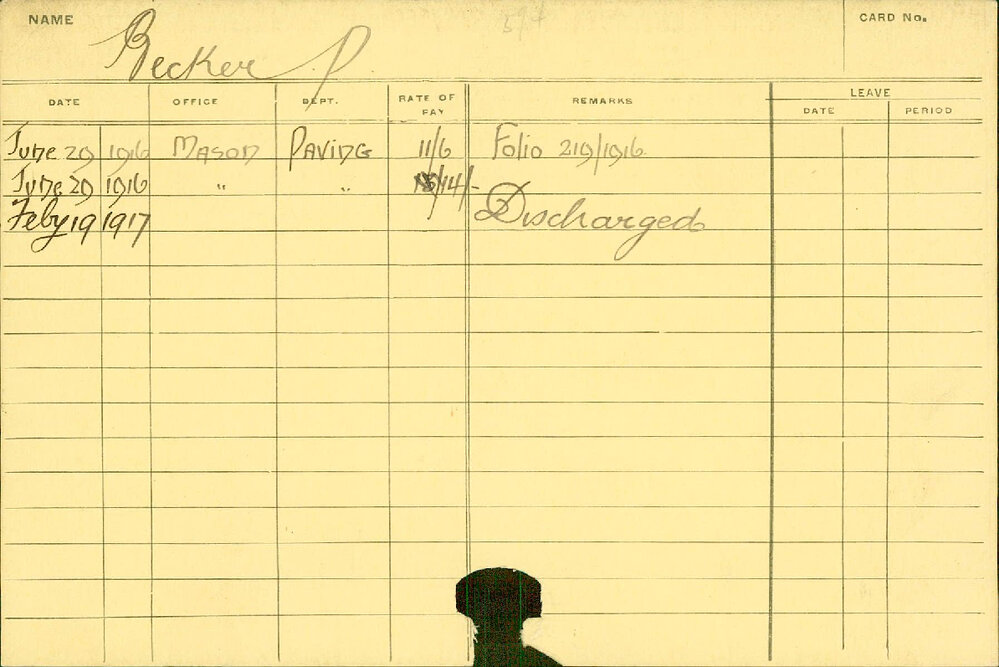 NAME Becker P CARD No.
DATE OFFICE DEPT. RATE OF PAY REMARKS LEAVE
DATE PERIOD
June 29 1916 Mason Paving 11/6 Folio 219/1916
June 29 1916 " " 14/-
Feby 19 1917 Discharged